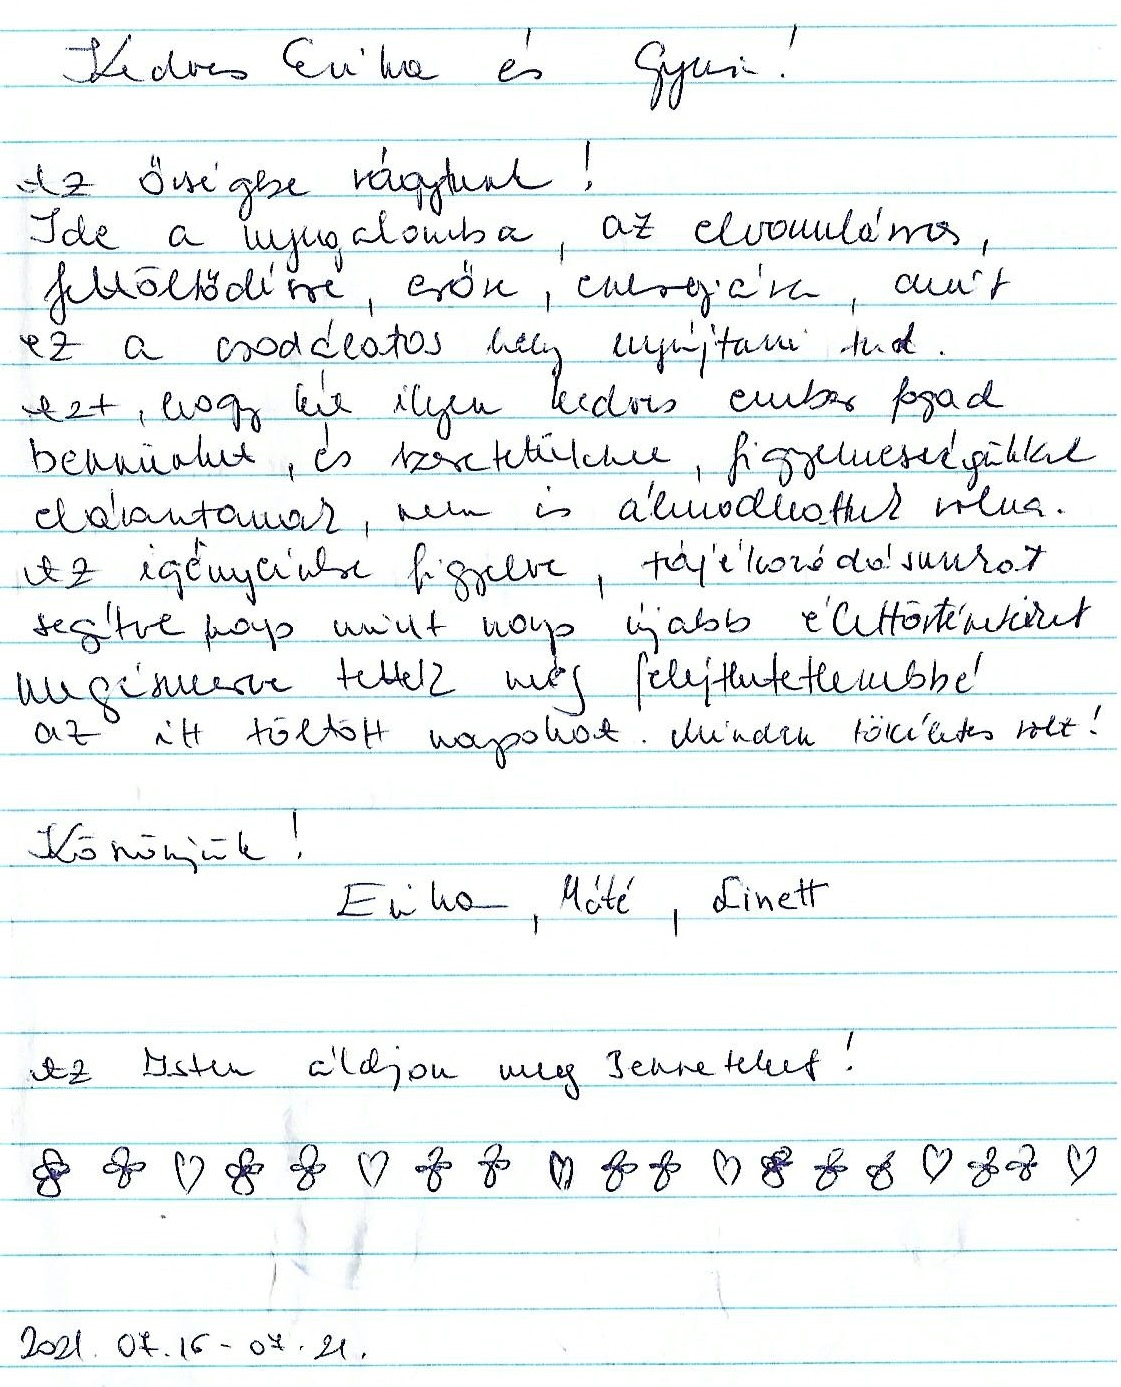 Kedves Erika és Gyuri!
Az Őrségbe vágytunk!
Ide a nyugalomba, az elvonulásra,
feltöltődésre, erőre, energiára, amit
ez a csodálatos hely nyújtani tud.
Azt, hogy két ilyen kedves ember fogad
bennünket, és szeretetükkel, figyelmességükkel
elárasztanak, nem is álmodhattuk volna.
Az igényeinkre figyelve, tájékozódásunkat
segítve nap mint nap újabb élettörténeteket
megismerve tettek még felejthetetlenebbé
az itt töltött napokat. Minden tökéletes volt!
Köszönjük!
Erika, Máté, Linett
Az Isten áldjon meg Benneteket!
2021. 07.16 - 07.21.